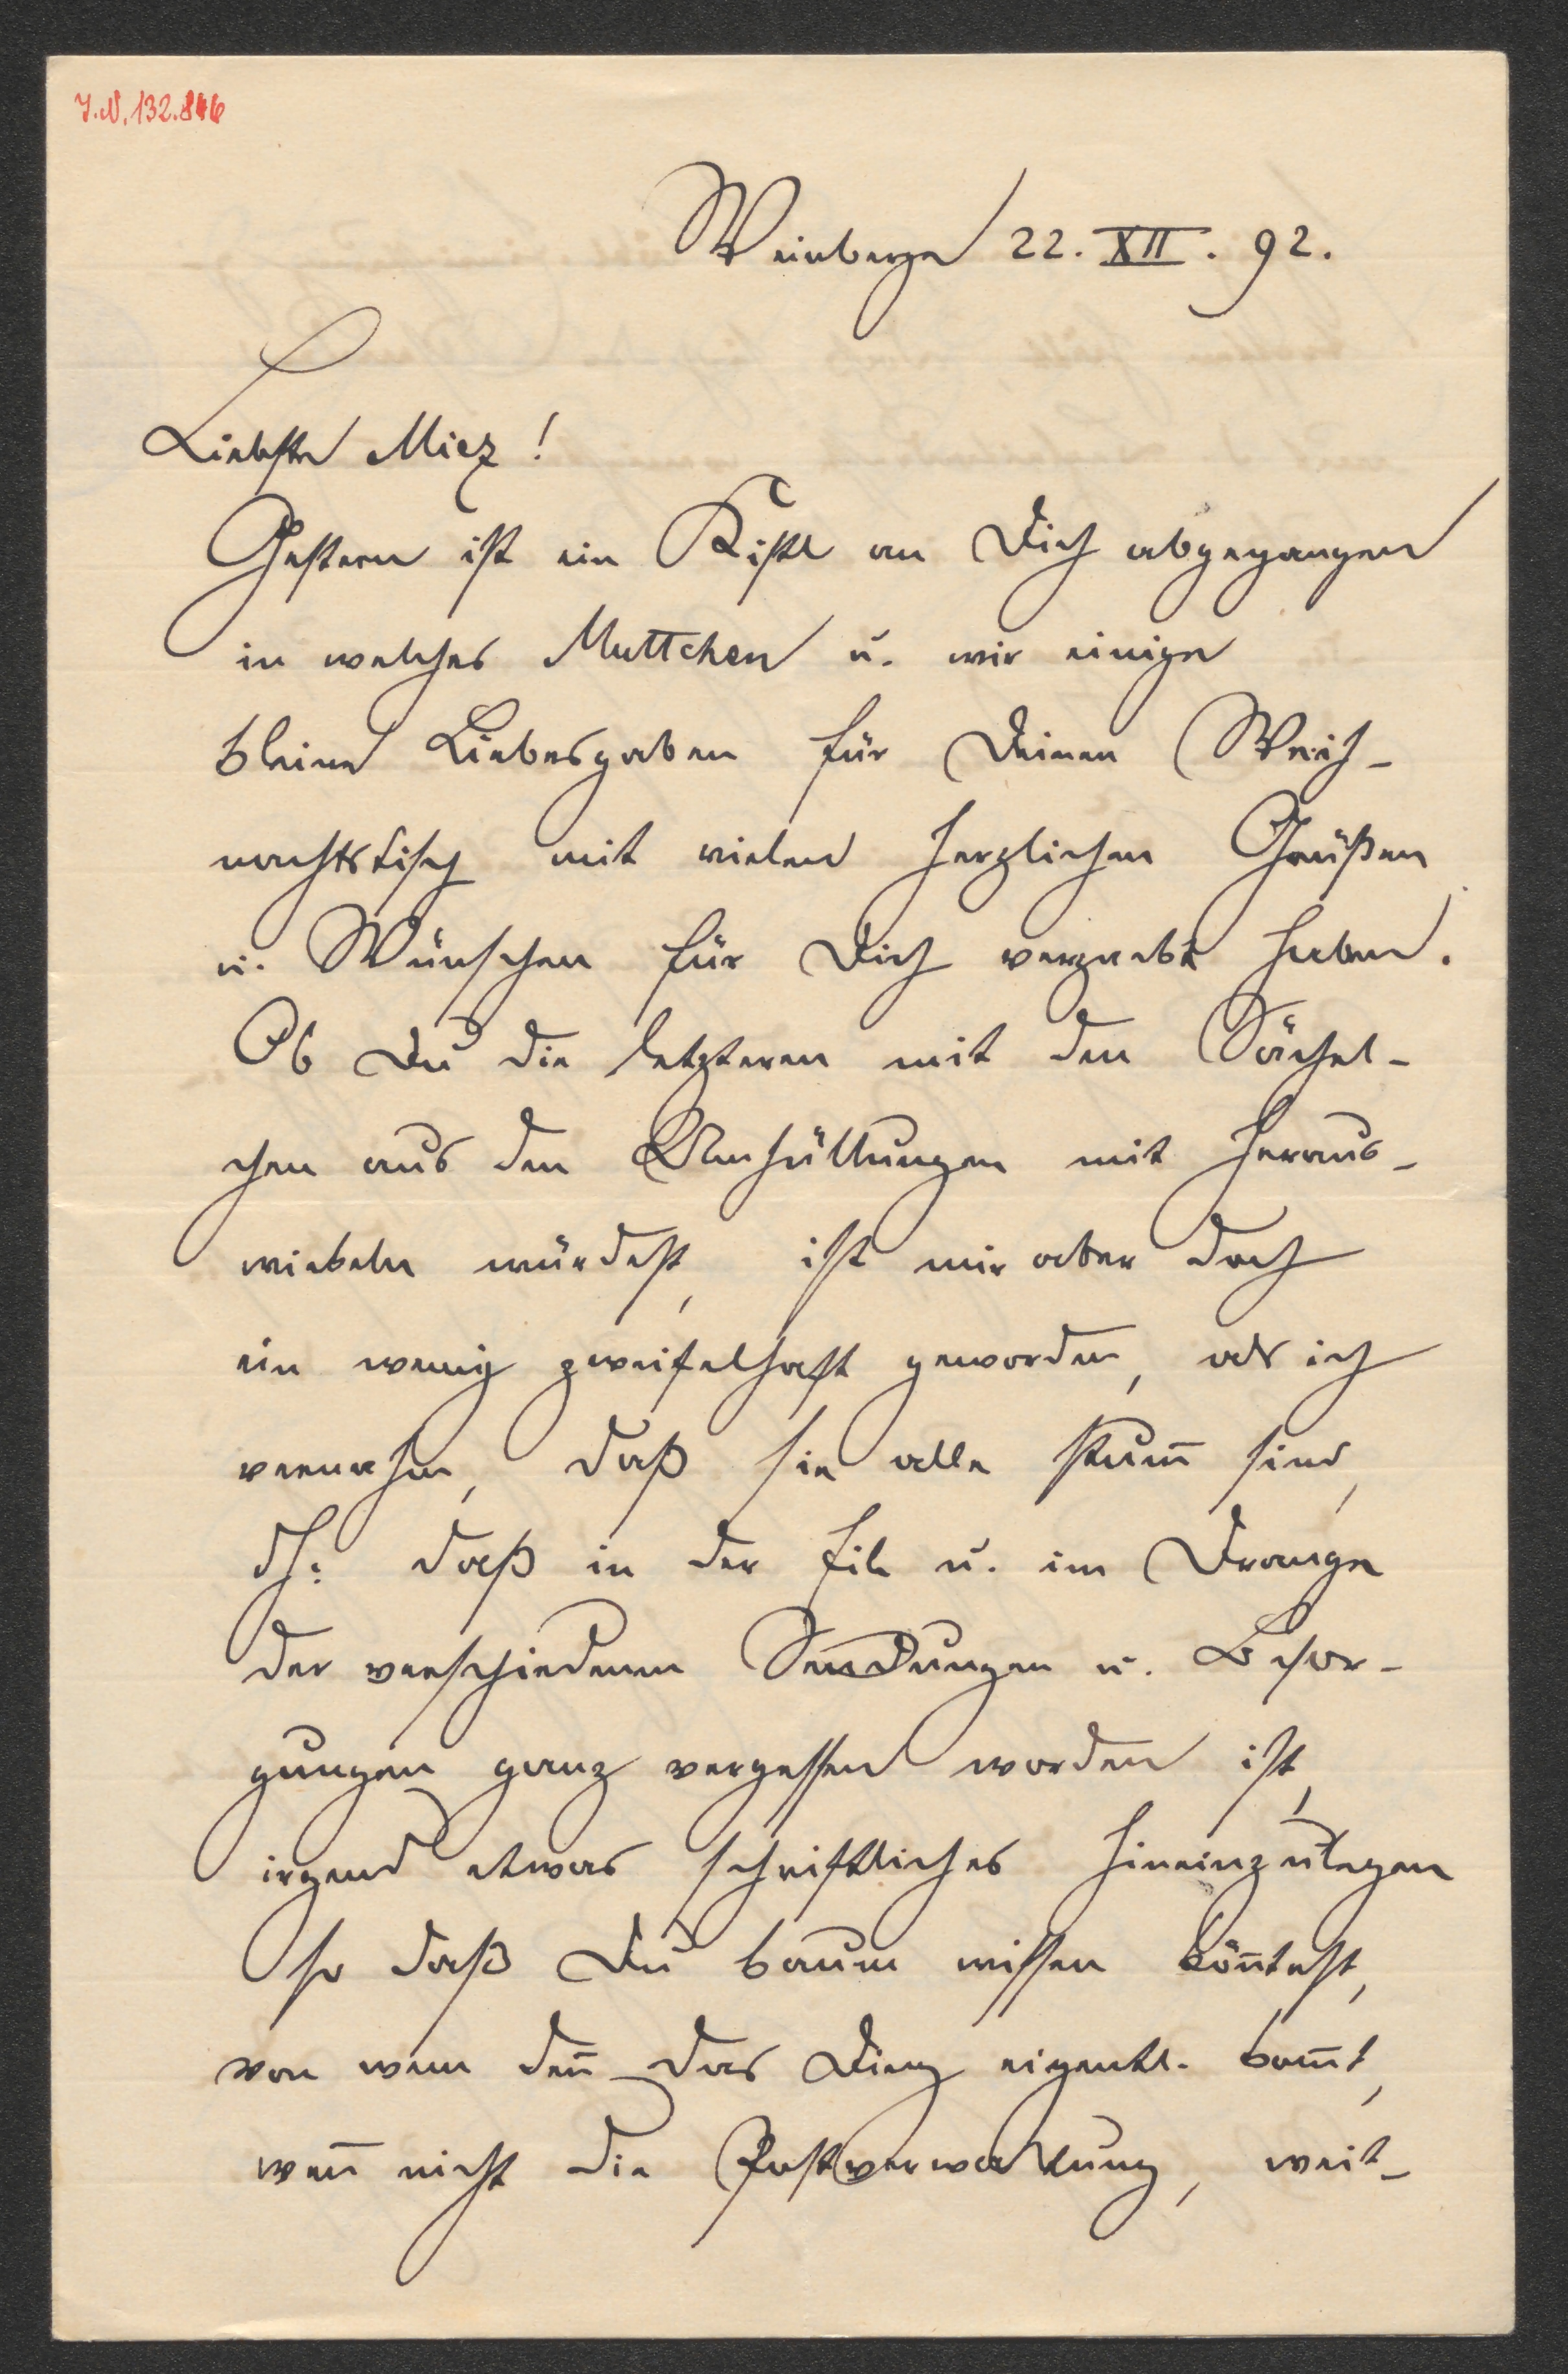 J.N. 132.846
Weinberge 22. XII. 92.
Liebste Miez!
Gestern ist ein Kistl an Dich abgegangen
in welches Muttchen u. wir einige
kleine Liebesgaben für Deinen Weih-
nachtstisch mit vielen herzlichen Grüßen
u. Wünschen für Dich verpackt haben.
Ob Du die letzteren mit den Sächel-
chen aus den Umhüllungen mit heraus-
wickeln würdest, ist mir aber doch
ein wenig zweifelhaft geworden, als ich
vernahm, daß sie alle stum̅ sind,
dh: daß in der Eile u. im Drange
der verschiedenen Sendungen u. Besor-
gungen ganz vergessen worden ist,
irgend etwas schriftliches hineinzulegen
so daß Du kaum wissen kön̅test,
von wem den̅ das Ding eigentl. kom̅t,
wen̅ nicht die Postverwaltung, weit-